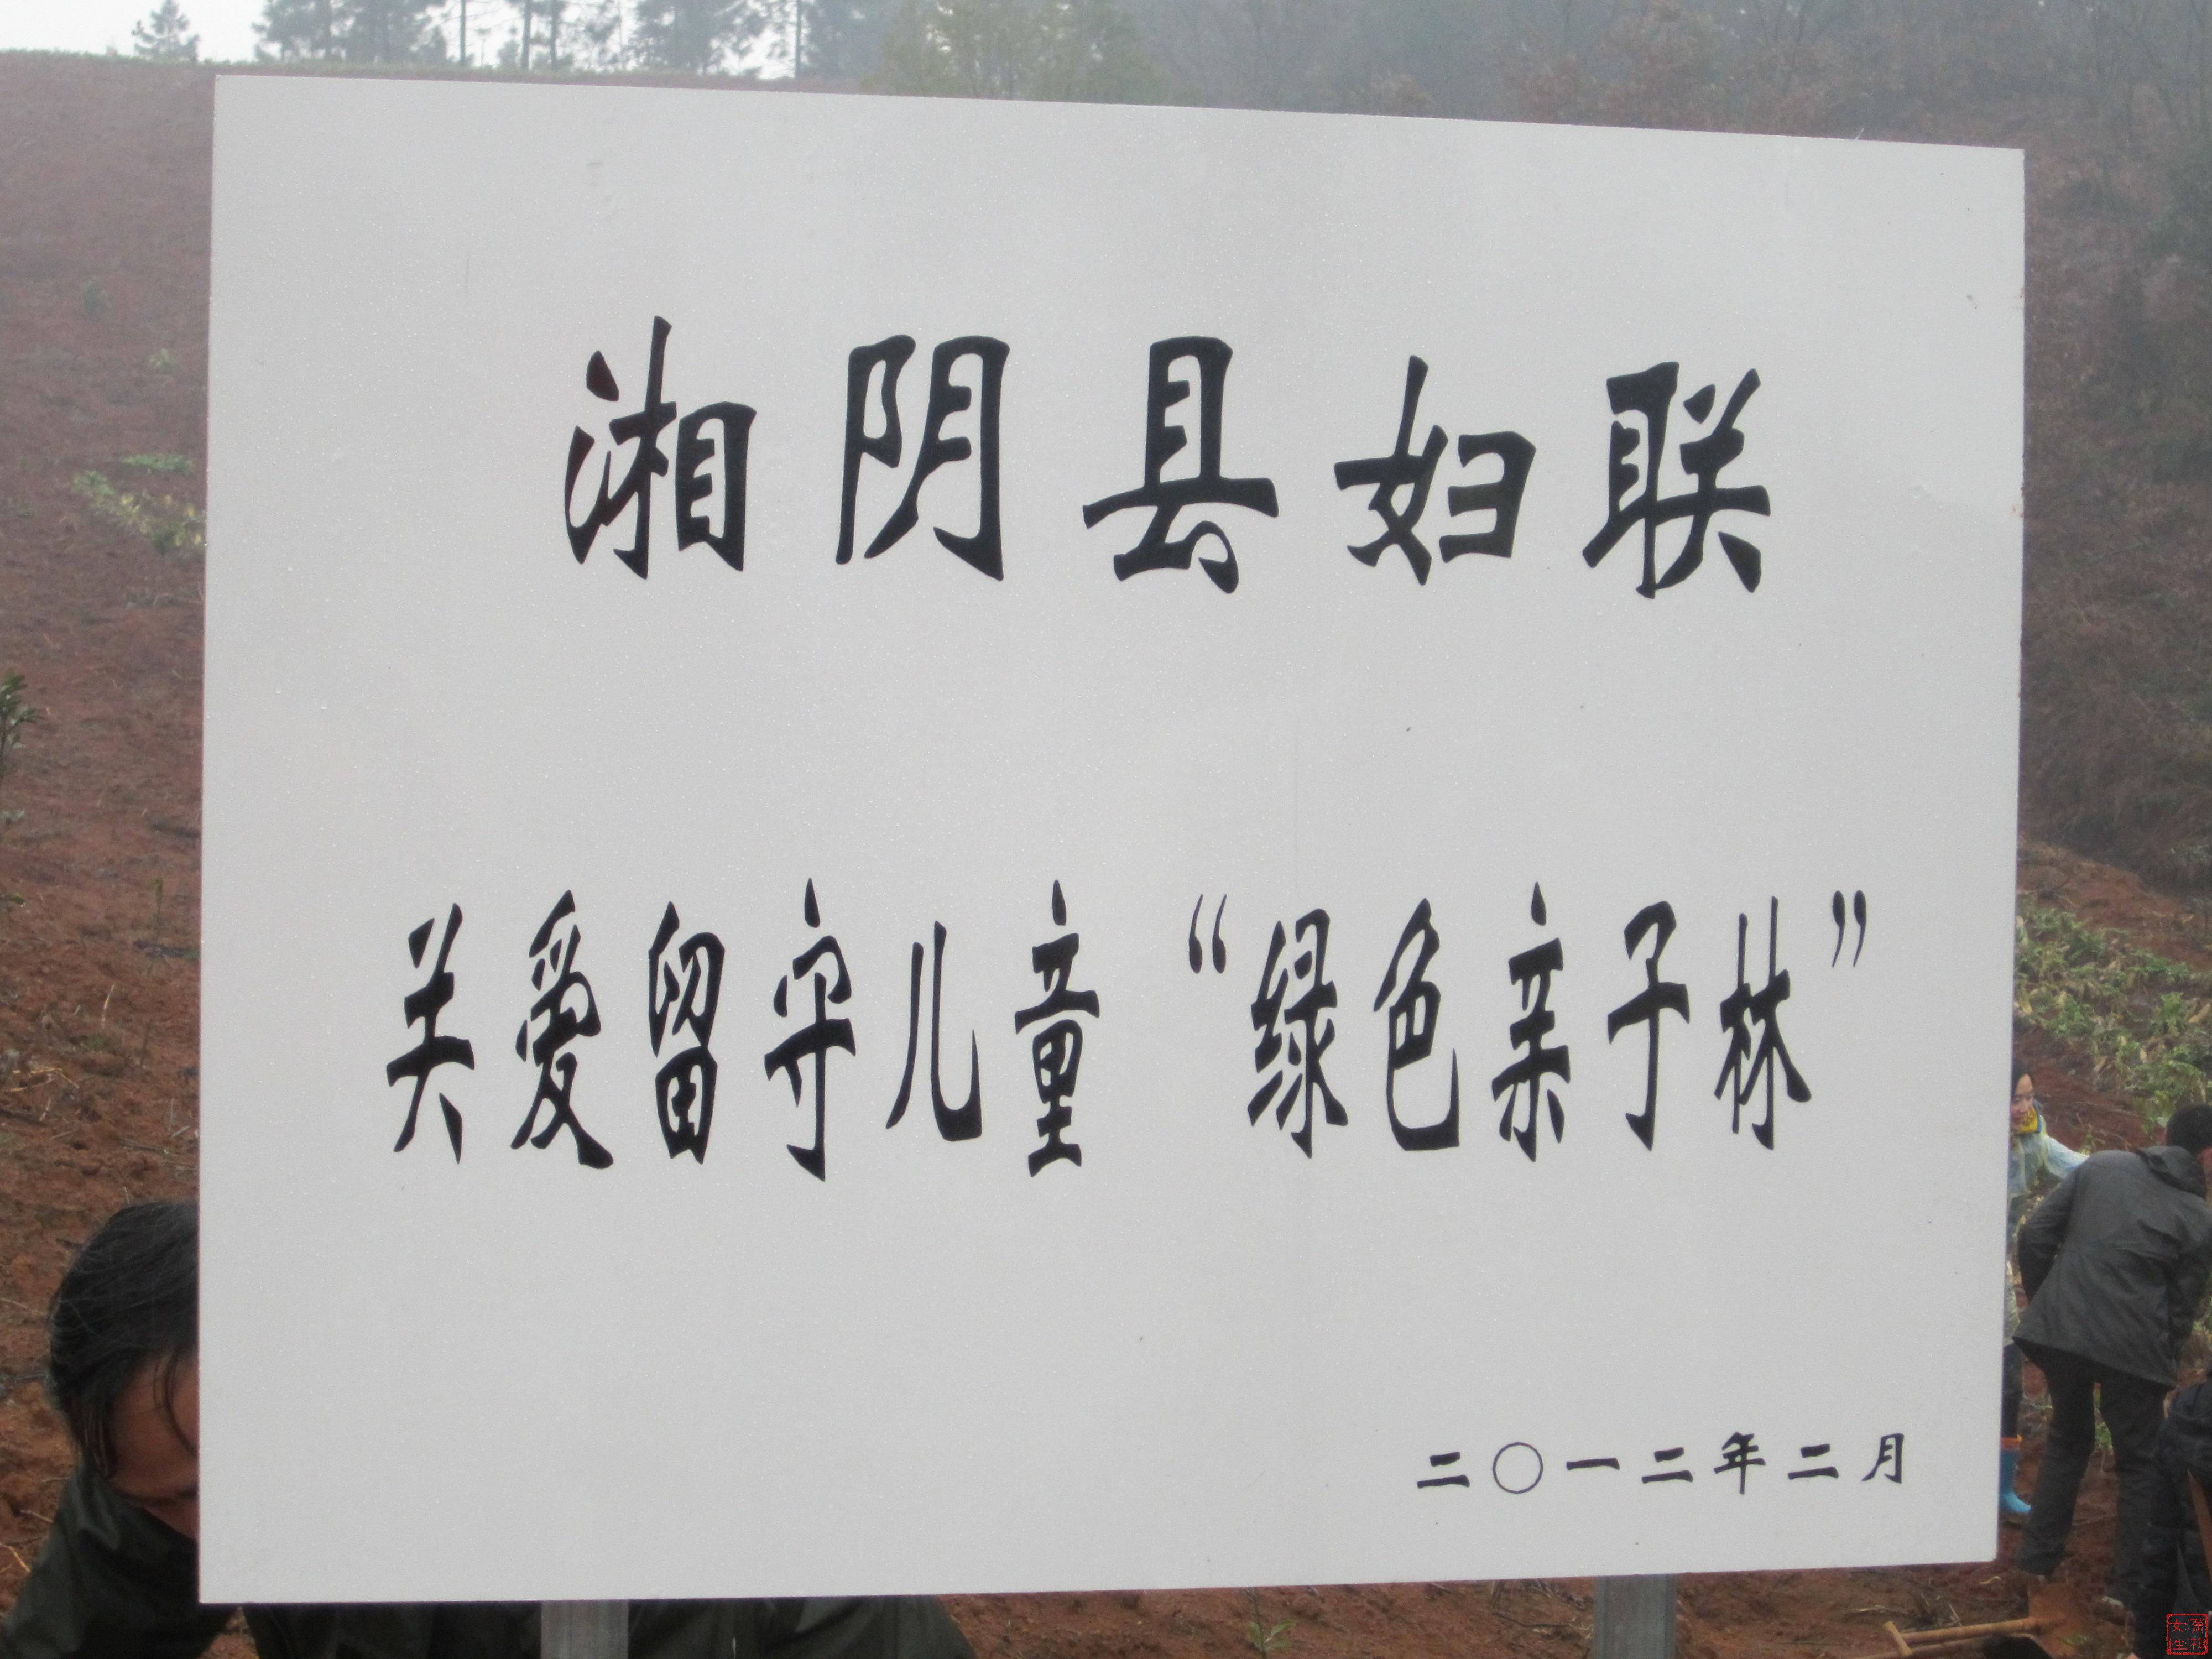 湘阴县妇联
关爱留守儿童“绿色亲子林”
二〇一二年二月